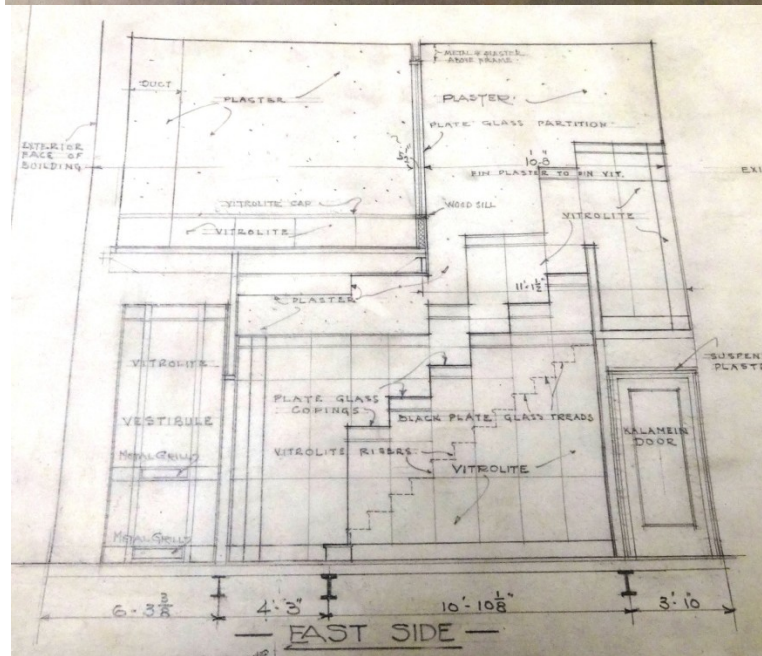 METAL & PLASTER
ABOVE FRAME
DUCT
PLASTER
PLASTER
PLATE GLASS PARTITION
EXTERIOR
FACE OF
BUILDING
10'-8"
FIN PLASTER TO FIN VIT.
EXI
VITROLITE CAP
WOOD SILL
VITROLITE
VITROLITE
11'-1½"
PLASTER
VITROLITE
SUSPEN
PLAST
PLATE GLASS
COPINGS
BLACK PLATE GLASS TREADS
VESTIBULE
KALAMEIN
DOOR
VITROLITE RISERS
METAL GRILL
VITROLITE
METAL GRILL
6-3 3/8"
4'-3"
10'-10 1/8"
3'-10
EAST SIDE